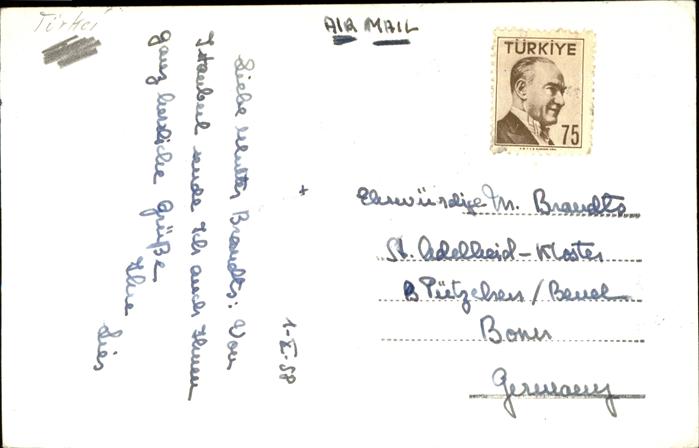 Türkei
AIR MAIL
TÜRKIYE
75
Liebe Mutter Brandts: Von
Istanbul sende Ich auch Ihnen
ganz herzliche Grüße
Ihre
Lies
1-X-58
Ehrwürdige M. Brandts
St. Adelheid-Kloster
B Pützchen/Beuel
Bonn
Germany